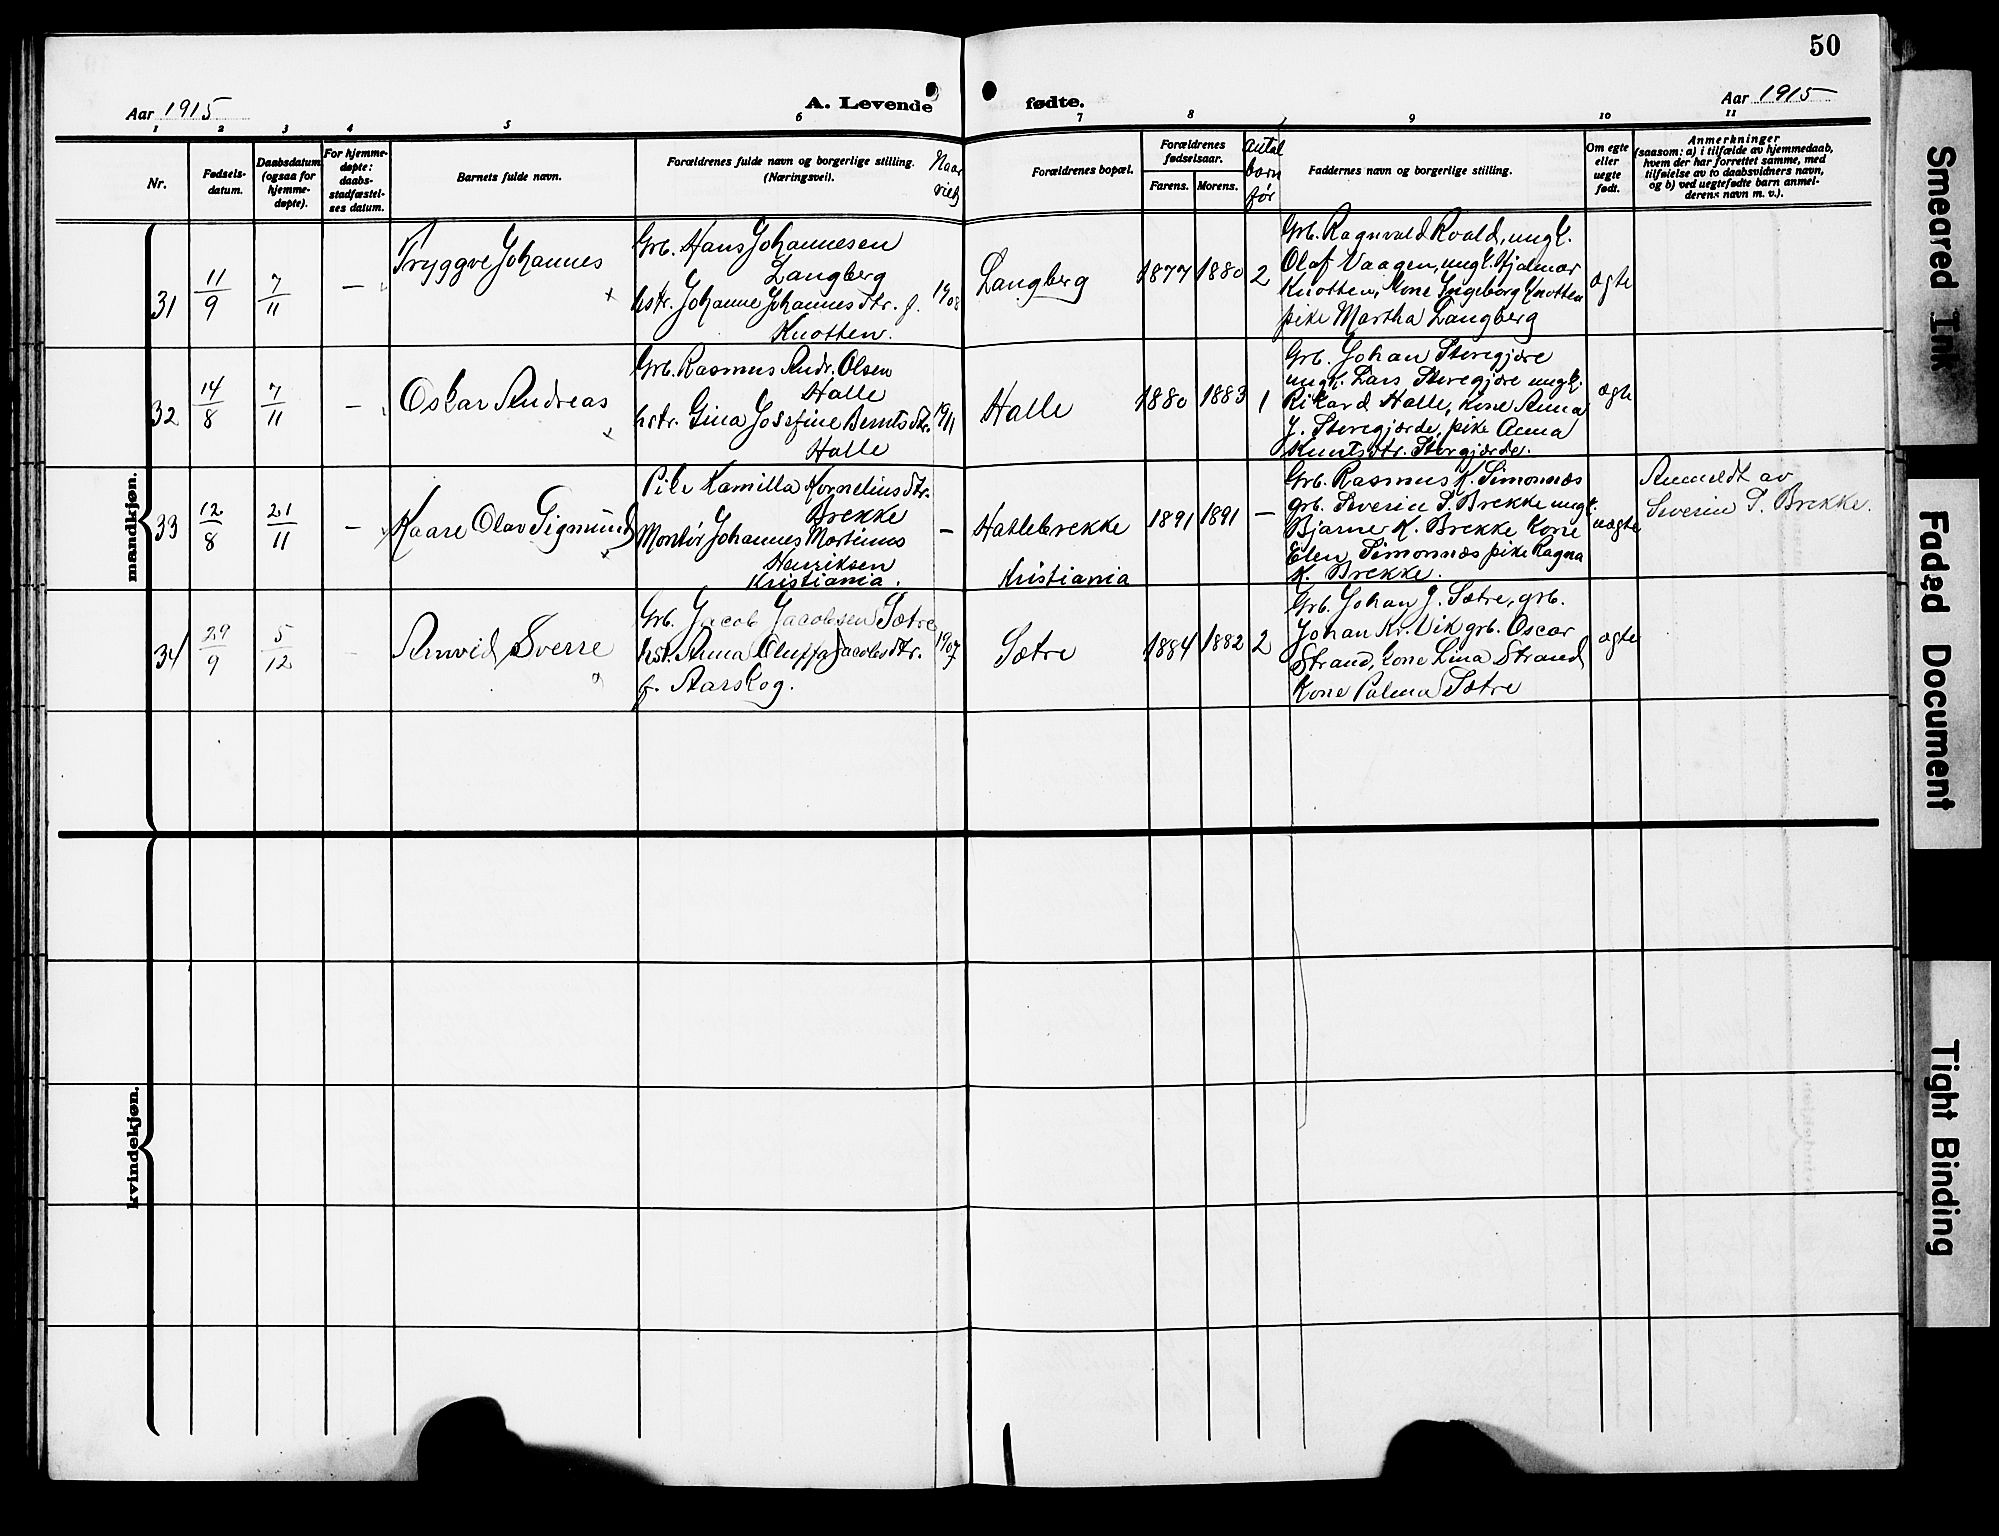 50
Aar 1915
A. Levende fødte.
Aar 1915
1 2 3 4 5 6 7 8 9 10 11
Nr.
Fødsels-
datum.
Daabsdatum
(ogsaa for
hjemme-
døpte).
For hjemme-
døpte:
daabs-
stadfæstel-
ses datum.
Barnets fulde navn.
Forældrenes fulde navn og borgerlige stilling.
(Næringsvei).
Naar
viet
Forældrenes bopæl.
Forældrenes
fødselsaar.
Farens. Morens.
Antal
barn
før
Faddernes navn og borgerlige stilling.
Om egte
eller
uegte
født.
Anmerkninger
(saasom: a) i tilfælde av hjemmedaab,
hvem der har forrettet samme, med
tilføielse av to daabsvidners navn,
og b) ved uegtefødte barn anmel-
derens navn m. v.).
mandkjøn.
31
11/9
7/11
—
Tryggve Johannes
Grb. Hans Johannesen
Langberg
hstr. Johanne Johannesdtr. f.
Knotten.
1908
Langberg
1877 1880 2
Grb. Ragnvald Roald, ungk.
Olaf Vaagen, ungk. Hjalmar
Knotten, kone Ingeborg Knotten
pike Martha Langberg
ægte
32
14/8
7/11
—
Oskar Andreas
Grb. Rasmus Andr. Olsen
Halle
hstr. Gina Josefine Berntsdtr.
Halle
1911
Halle
1880 1883 1
Grb. Johan Storegjøre
ungk. Lars Storegjøre ungk.
Rikard Halle, kone Anna
J. Storegjærde, pike Anna
Knutsdtr. Storgjærde.
ægte
33
12/8
21/11
—
Kaare Olav Sigmund
Pike Kamilla Korneliusdtr.
Brekke
Montør Johannes Martinus
Henriksen
Kristiania.
—
Hatlebrekke
Kristiania
1891 1891 —
Grb. Rasmus K. Simonnæs
grb. Severin S. Brekke ungk.
Bjarne K. Brekke Kone
Elen Simonnæs pike Ragna
K. Brekke.
uægte
Anmeldt av
Severin S. Brekke.
34
29/9
5/12
—
Arnvid Sverre
Grb. Jacob Jacobsen Sætre
hst. Anna Oluffa Jacobsdtr.
f. Aarskog.
1907
Sætre
1884 1882 2
Grb. Johan J. Sætre, grb.
Johan Kr. Vik grb. Oscar
Strand, kone Lina Strand
Kone Palma Sætre
ægte
kvindekjøn.
Smeared Ink
Faded Document
Tight Binding